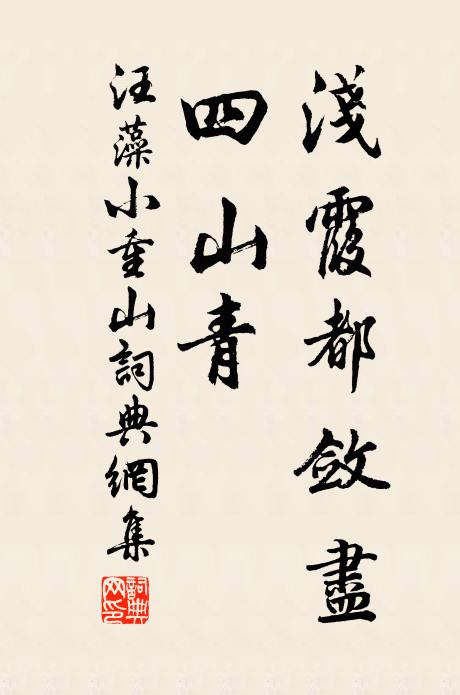 淺霞都斂盡
四山青
汪藻小重山詞典網集
詞典網印